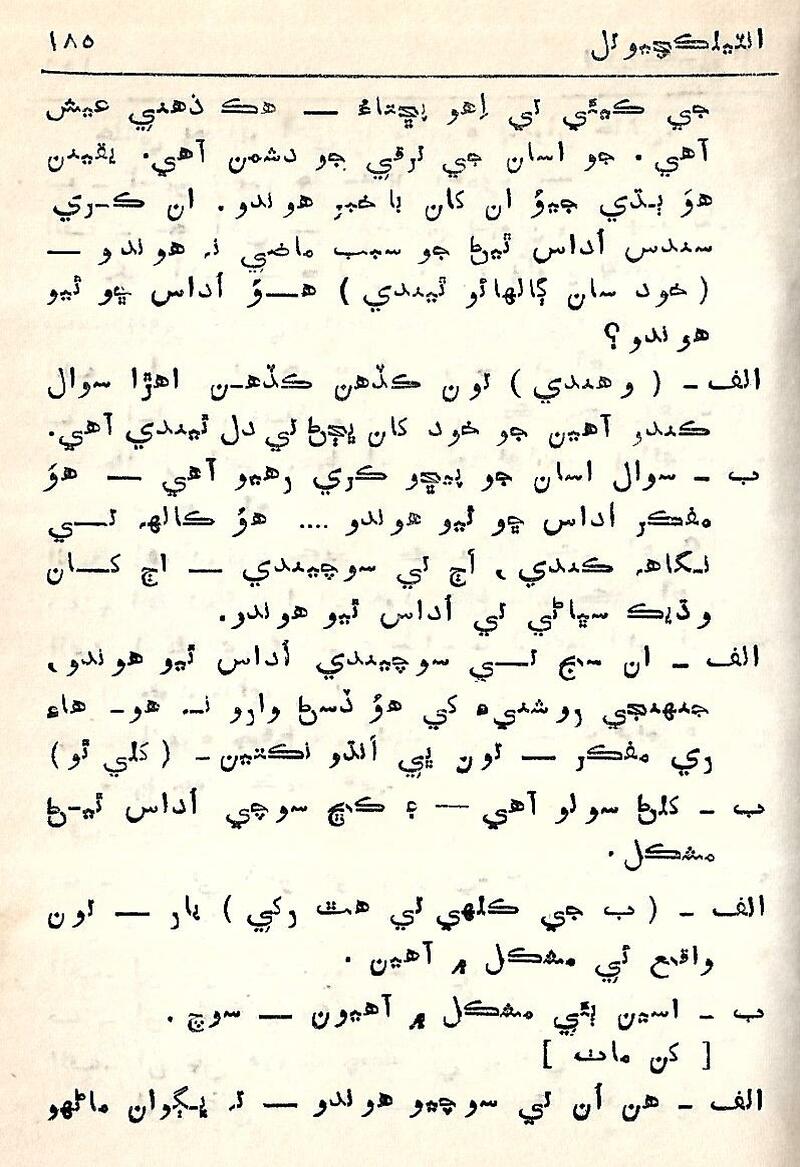 انٽيليڪچيوئل ١٨٥
جي ڪيئي تي اِهو پڇتاءُ — هڪ ذهني عيش
آهي. جو اسان جي ترقي جو دشمن آهي. يقينن
هوَ ٻڌي جيوُ ان کان با خبر هوندو. ان ڪري
سندس اُداس ٿيڻ جو سبب ماضي نہ هوندو —
( خود سان ڳالهائو ٿيندي ) هوُ اُداس ڇو ٿيو
هوندو؟
الف - ( وهندي ) تون ڪڏهن ڪڏهن اهڙا سوال
ڪندو آهين جو خود کان پڇڻ تي دل ٿيندي آهي.
ب - سوال اسان جو پيڇو ڪري رهيو آهي — هوَ
مفڪر اداس ڇو ٿيو هوندو .... هوُ ڪالهہ تي
نگاهہ ڪندي، اڄ تي سوچيندي — اڄ کان
وڌيڪ سڀاڻي تي اُداس ٿيو هوندو.
الف - ان سڀ تي سوچيندي اُداس ٿيو هوندو،
جنهنجي روشنيءَ کي هوُ ڏسڻ وارو نہ هو- هاءِ
ري مفڪر — تون ڀي اُنڌو نڪتين - ( کلي ٿو )
ب - کلڻ سولو آهي — ۽ ڪجھ سوچي اُداس ٿيڻ
مشڪل.
الف - ( ب جي ڪلهي تي هٿ رکي ) يار — تون
واقع ئي مشڪل ۾ آهين.
ب - اسين ٻئي مشڪل ۾ آهيون — سوچ.
[ کن ماٺ ]
الف - هن اُن تي سوچيو هوندو — تہ ڀڳوان ماڻهو